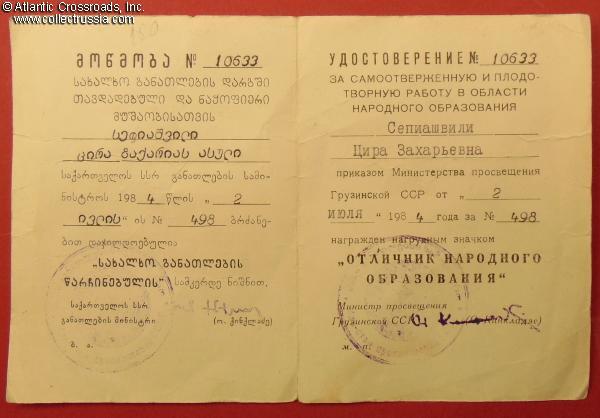 © Atlantic Crossroads, Inc.
www.collectrussia.com
მოწმობა № 10633
სახალხო განათლების დარგში
თავდადებული და ნაყოფიერი
მუშაობისათვის
სეფიაშვილი
ცირა ზაქარიას ასული
საქართველოს სსრ განათლების სამი-
ნისტროს 1984 წლის „ 2
ივლის“ ის № 498 ბრძანე-
ბით დაჯილდოებულია
„სახალხო განათლების
წარჩინებულის“ სამკერდე ნიშნით.
საქართველოს სსრ
განათლების მინისტრი
(ო. ქინქლაძე)
ბ. ა.
УДОСТОВЕРЕНИЕ № 10633
ЗА САМООТВЕРЖЕННУЮ И ПЛОДО-
ТВОРНУЮ РАБОТУ В ОБЛАСТИ
НАРОДНОГО ОБРАЗОВАНИЯ
Сепиашвили
Цира Захарьевна
приказом Министерства просвещения
Грузинской ССР от „ 2
ИЮЛЯ “ 1984 года за № 498
награжден нагрудным значком
„ОТЛИЧНИК НАРОДНОГО
ОБРАЗОВАНИЯ“
Министр просвещения
Грузинской ССР (О. Кинкладзе)
м. п.